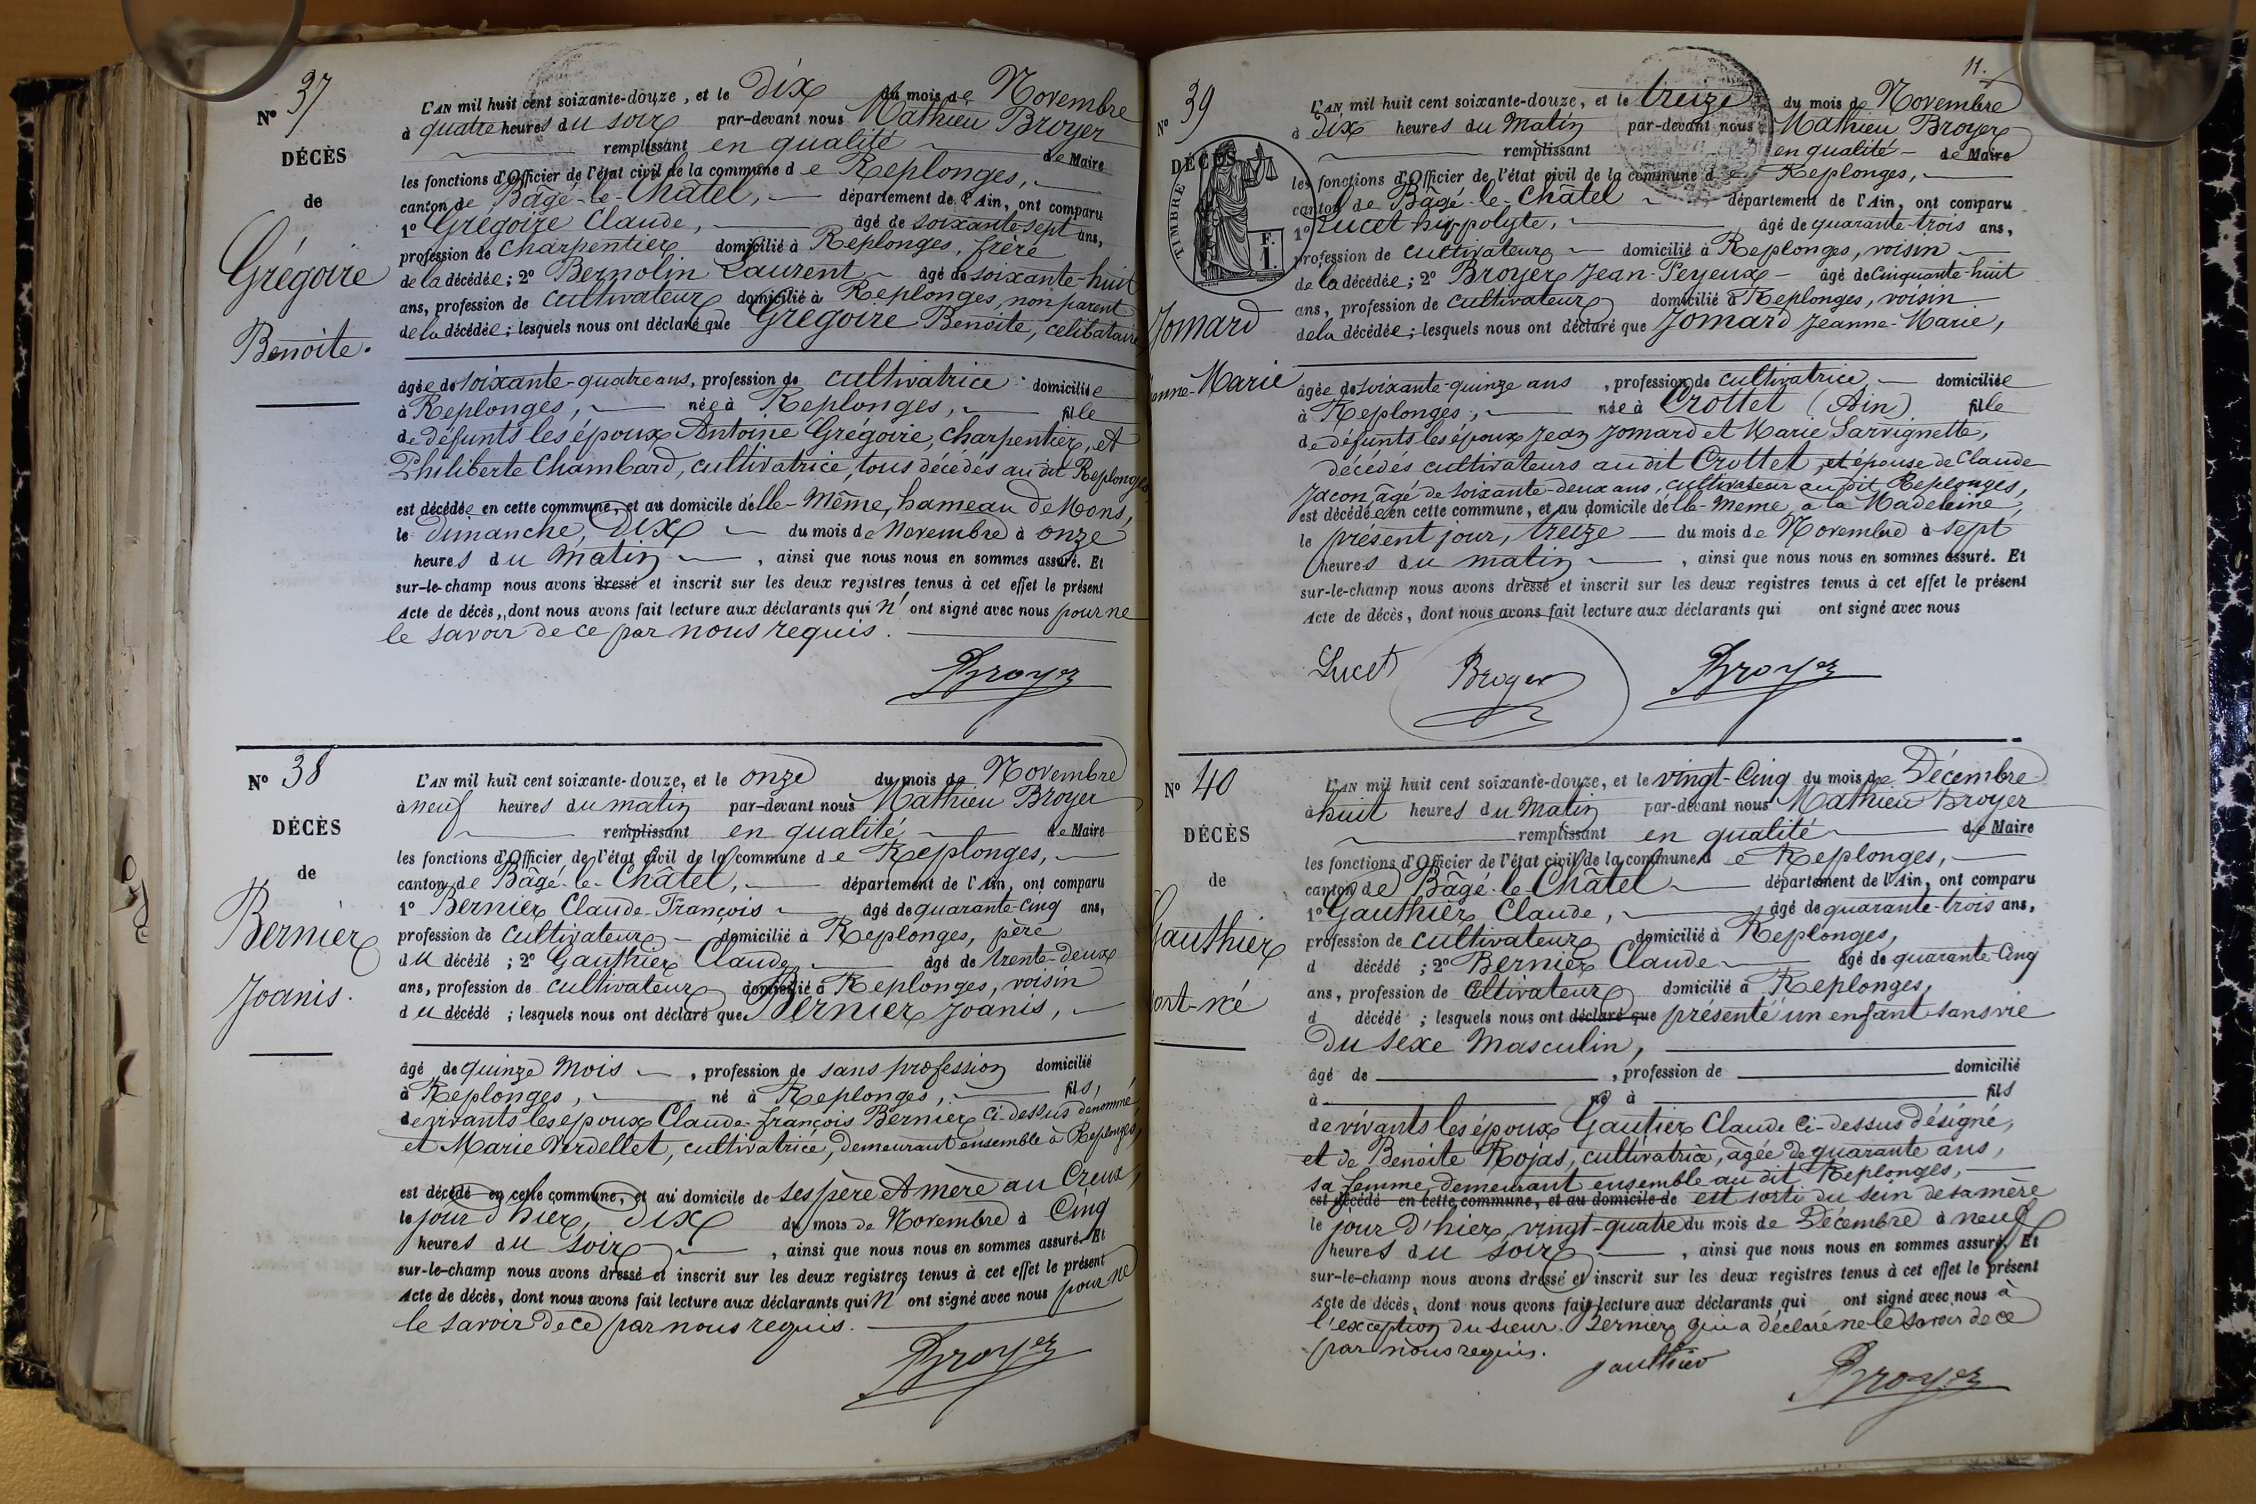 Nº 37
DÉCÈS
de
Grégoire
Benoite.
L'AN mil huit cent soixante-douze, et le Dix du mois de Novembre
à quatre heures du soir par-devant nous Mathieu Broyer
remplissant en qualité de Maire
les fonctions d'Officier de l'état civil de la commune de Replonges,
canton de Bâgé-le-Châtel, département de l'Ain, ont comparu
1º Grégoire Claude, âgé de soixante-sept ans,
profession de charpentier domicilié à Replonges, frère
de la décédée; 2º Bernolin Laurent âgé de soixante-huit
ans, profession de cultivateur domicilié à Replonges, non parent
de la décédée; lesquels nous ont déclaré que Grégoire Benoite, célibataire
âgée de soixante-quatre ans, profession de cultivatrice domiciliée
à Replonges, née à Replonges, fille
de défunts les époux Antoine Grégoire, charpentier, et
Philiberte Chambard, cultivatrice, tous décédés au dit Replonges
est décédée en cette commune, et au domicile d'elle-même, hameau de Mons,
le dimanche, Dix du mois de Novembre à onze
heures du matin, ainsi que nous nous en sommes assuré. Et
sur-le-champ nous avons dressé et inscrit sur les deux registres tenus à cet effet le présent
Acte de décès, dont nous avons fait lecture aux déclarants qui n'ont signé avec nous pour ne
le savoir de ce par nous requis.
Broyer
Nº 38
DÉCÈS
de
Bernier
Joanis.
L'AN mil huit cent soixante-douze, et le onze du mois de Novembre
à neuf heures du matin par-devant nous Mathieu Broyer
remplissant en qualité de Maire
les fonctions d'Officier de l'état civil de la commune de Replonges,
canton de Bâgé-le-Châtel, département de l'Ain, ont comparu
1º Bernier Claude-François âgé de quarante-cinq ans,
profession de cultivateur domicilié à Replonges, père
du décédé; 2º Gauthier Claude âgé de trente-deux
ans, profession de cultivateur domicilié à Replonges, voisin
du décédé; lesquels nous ont déclaré que Bernier Joanis,
âgé de quinze mois, profession de sans profession domicilié
à Replonges, né à Replonges, fils,
de vivants les époux Claude-françois Bernier ci-dessus dénommé
et Marie Verdellet, cultivatrice, demeurant ensemble à Replonges,
est décédé en cette commune, et au domicile de ses père et mère au Creux,
le jour d'hier, dix du mois de Novembre à Cinq
heures du soir, ainsi que nous nous en sommes assuré. Et
sur-le-champ nous avons dressé et inscrit sur les deux registres tenus à cet effet le présent
Acte de décès, dont nous avons fait lecture aux déclarants qui n'ont signé avec nous pour ne
le savoir de ce par nous requis.
Broyer
11.
Nº 39
DÉCÈS
TIMBRE
F. I.
Jomard
anne-Marie
L'AN mil huit cent soixante-douze, et le treize du mois de Novembre
à dix heures du matin par-devant nous Mathieu Broyer
remplissant en qualité de Maire
les fonctions d'Officier de l'état civil de la commune de Replonges,
canton de Bâgé-le-Châtel département de l'Ain, ont comparu
1º Lucet hippolyte, âgé de quarante-trois ans,
profession de cultivateur domicilié à Replonges, voisin
de la décédée; 2º Broyer Jean-Peyeux âgé de Cinquante-huit
ans, profession de cultivateur domicilié à Replonges, voisin
de la décédée; lesquels nous ont déclaré que Jomard Jeanne-Marie,
âgée de soixante-quinze ans, profession de cultivatrice domiciliée
à Replonges, née à Crottet (Ain) fille
de défunts les époux Jean Jomard et Marie Sarvignette,
décédés cultivateurs au dit Crottet, et épouse de Claude
Jacon, âgé de soixante-deux ans, cultivateur au dit Replonges,
est décédée en cette commune, et au domicile d'elle-même à la Madeleine,
le présent jour, treize du mois de Novembre à sept
heures du matin, ainsi que nous nous en sommes assuré. Et
sur-le-champ nous avons dressé et inscrit sur les deux registres tenus à cet effet le présent
Acte de décès, dont nous avons fait lecture aux déclarants qui ont signé avec nous
Lucet Broyer Broyer
Nº 40
DÉCÈS
de
Gauthier
ort-né
L'AN mil huit cent soixante-douze, et le vingt-Cinq du mois de Décembre
à huit heures du Matin par-devant nous Mathieu Broyer
remplissant en qualité de Maire
les fonctions d'Officier de l'état civil de la commune de Replonges,
canton de Bâgé-le-Châtel département de l'Ain, ont comparu
1º Gauthier Claude, âgé de quarante-trois ans,
profession de cultivateur domicilié à Replonges,
d décédé; 2º Bernier Claude âgé de quarante-Cinq
ans, profession de Cltivateur domicilié à Replonges,
d décédé; lesquels nous ont déclaré que présenté un enfant sans vie
du sexe Masculin,
âgé de , profession de domicilié
à né à fils
de vivants les époux Gautier Claude Ci-dessus désigné,
et de Benoite Rojas, cultivatrice, âgée de quarante ans,
sa femme, demeurant ensemble au dit Replonges,
est décédé en cette commune, et au domicile de est sorti du sein de sa mère
le jour d'hier, vingt-quatre du mois de Décembre à neuf
heures du soir, ainsi que nous nous en sommes assuré. Et
sur-le-champ nous avons dressé et inscrit sur les deux registres tenus à cet effet le présent
Acte de décès, dont nous avons fait lecture aux déclarants qui ont signé avec nous à
l'exception du sieur Bernier qui a déclaré ne le savoir de ce
par nous requis.
gauthier Broyer